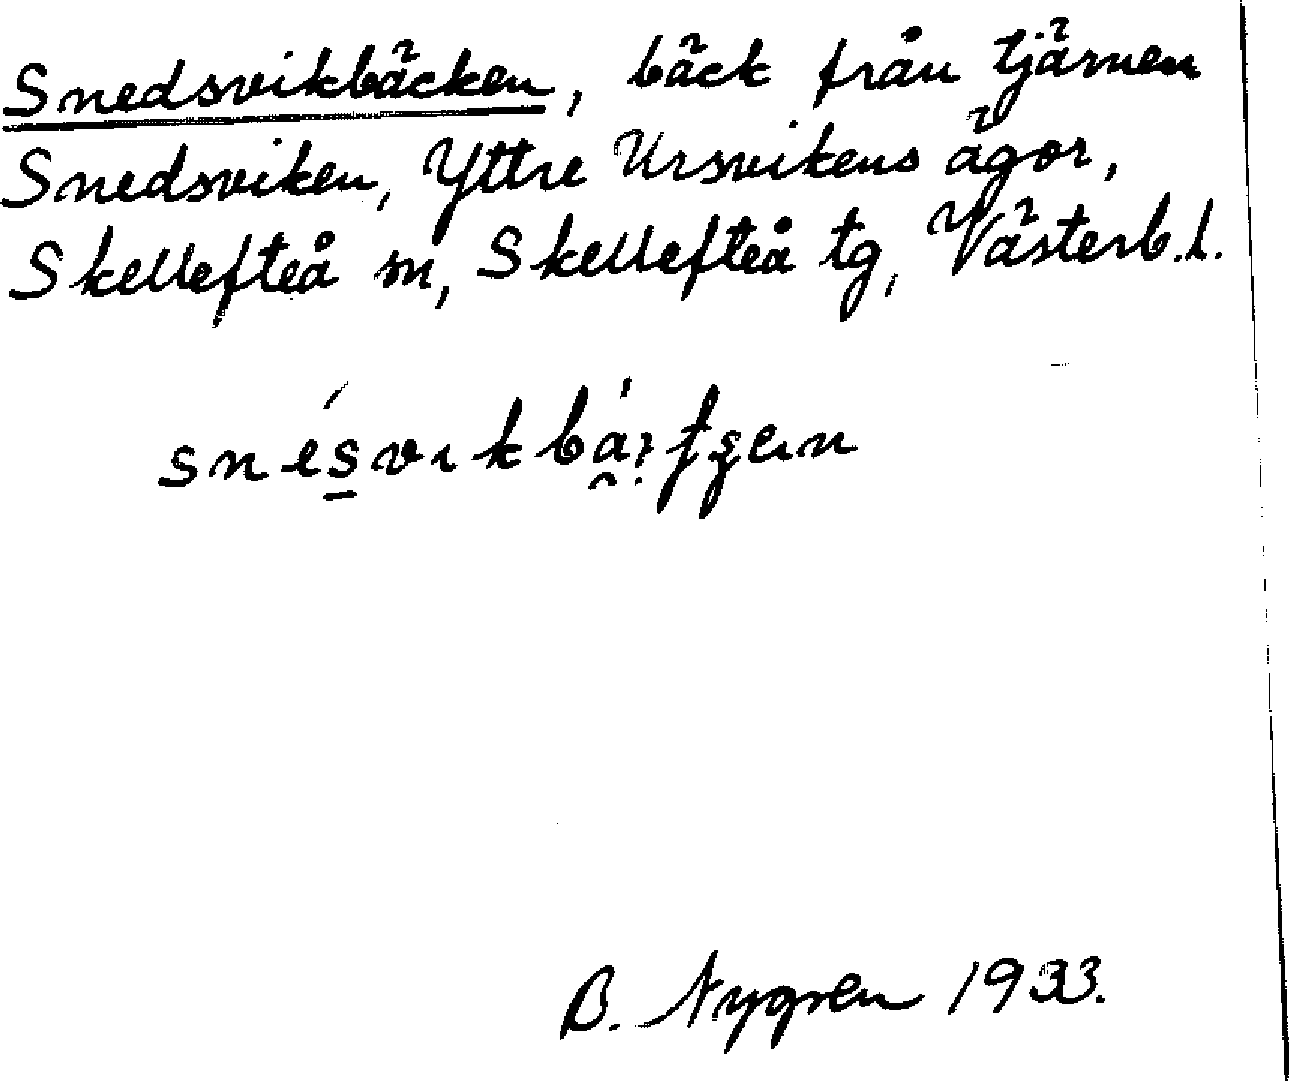 Snedsvikbäcken, bäck från tjärnen
Snedsviken, Yttre Ursvikens ägor,
Skellefteå sn, Skellefteå tg, Västerb. l.
B. Nygren 1933.